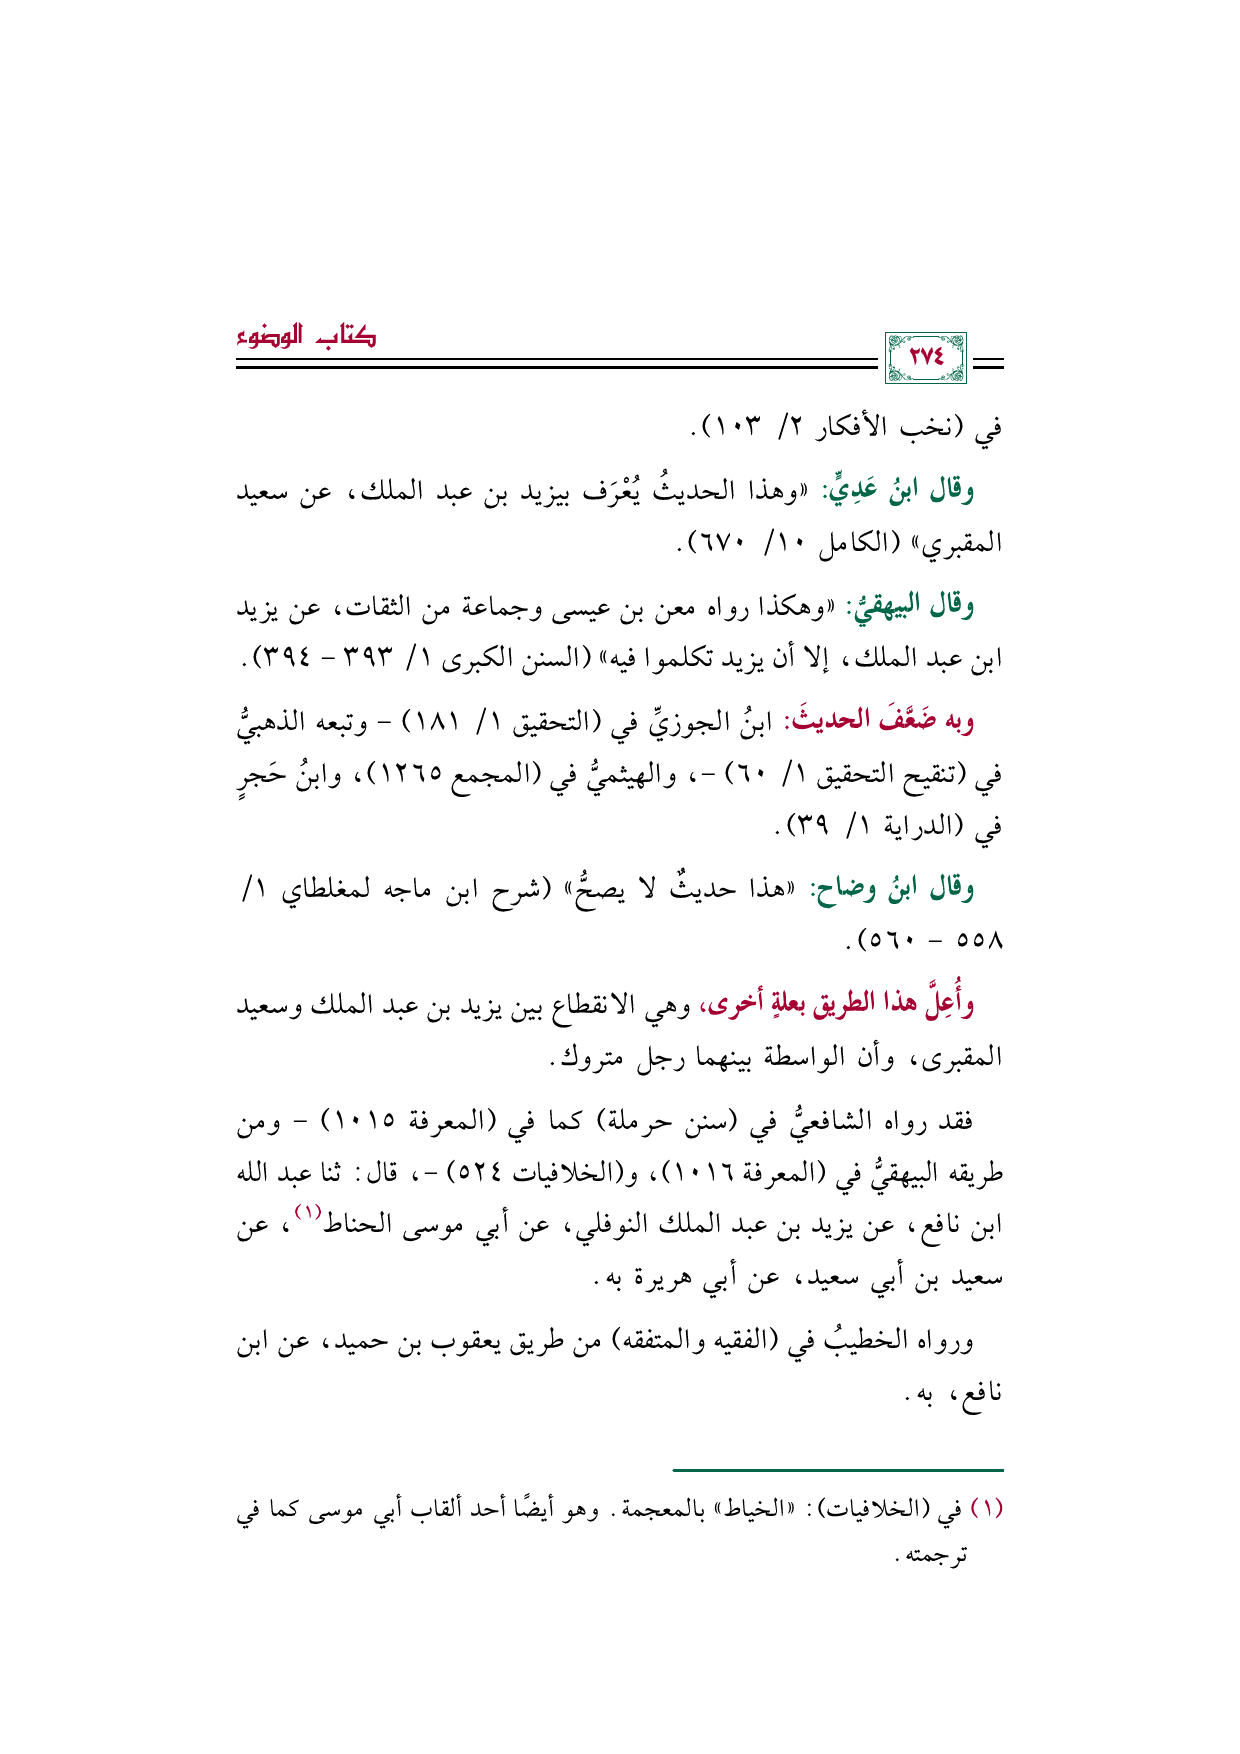 كتاب الوضوء
٢٧٤
في (نخب الأفكار ٢/ ١٠٣).
وقال ابنُ عَدِيٍّ: «وهذا الحديثُ يُعْرَف بيزيد بن عبد الملك، عن سعيد
المقبري» (الكامل ١٠/ ٦٧٠).
وقال البيهقيُّ: «وهكذا رواه معن بن عيسى وجماعة من الثقات، عن يزيد
ابن عبد الملك، إلا أن يزيد تكلموا فيه» (السنن الكبرى ١/ ٣٩٣ – ٣٩٤).
وبه ضَعَّفَ الحديثَ: ابنُ الجوزيِّ في (التحقيق ١/ ١٨١) – وتبعه الذهبيُّ
في (تنقيح التحقيق ١/ ٦٠) –، والهيثميُّ في (المجمع ١٢٦٥)، وابنُ حَجرٍ
في (الدراية ١/ ٣٩).
وقال ابنُ وضاح: «هذا حديثٌ لا يصحُّ» (شرح ابن ماجه لمغلطاي ١/
٥٥٨ – ٥٦٠).
وأُعِلَّ هذا الطريق بعلةٍ أخرى، وهي الانقطاع بين يزيد بن عبد الملك وسعيد
المقبرى، وأن الواسطة بينهما رجل متروك.
فقد رواه الشافعيُّ في (سنن حرملة) كما في (المعرفة ١٠١٥) – ومن
طريقه البيهقيُّ في (المعرفة ١٠١٦)، و(الخلافيات ٥٢٤) –، قال: ثنا عبد الله
ابن نافع، عن يزيد بن عبد الملك النوفلي، عن أبي موسى الحناط(١)، عن
سعيد بن أبي سعيد، عن أبي هريرة به.
ورواه الخطيبُ في (الفقيه والمتفقه) من طريق يعقوب بن حميد، عن ابن
نافع، به.
(١) في (الخلافيات): «الخياط» بالمعجمة. وهو أيضًا أحد ألقاب أبي موسى كما في
ترجمته.